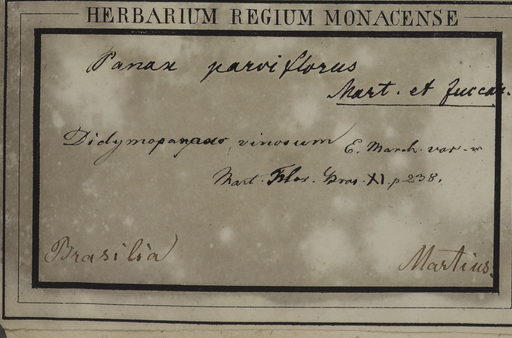 HERBARIUM REGIUM MONACENSE
Panax parviflorus
Mart. et Zuccar.
Didymopanax vinosum E. March. var.
Mart. Flor. Bras. XI. p 238.
Brasilia
Martius.